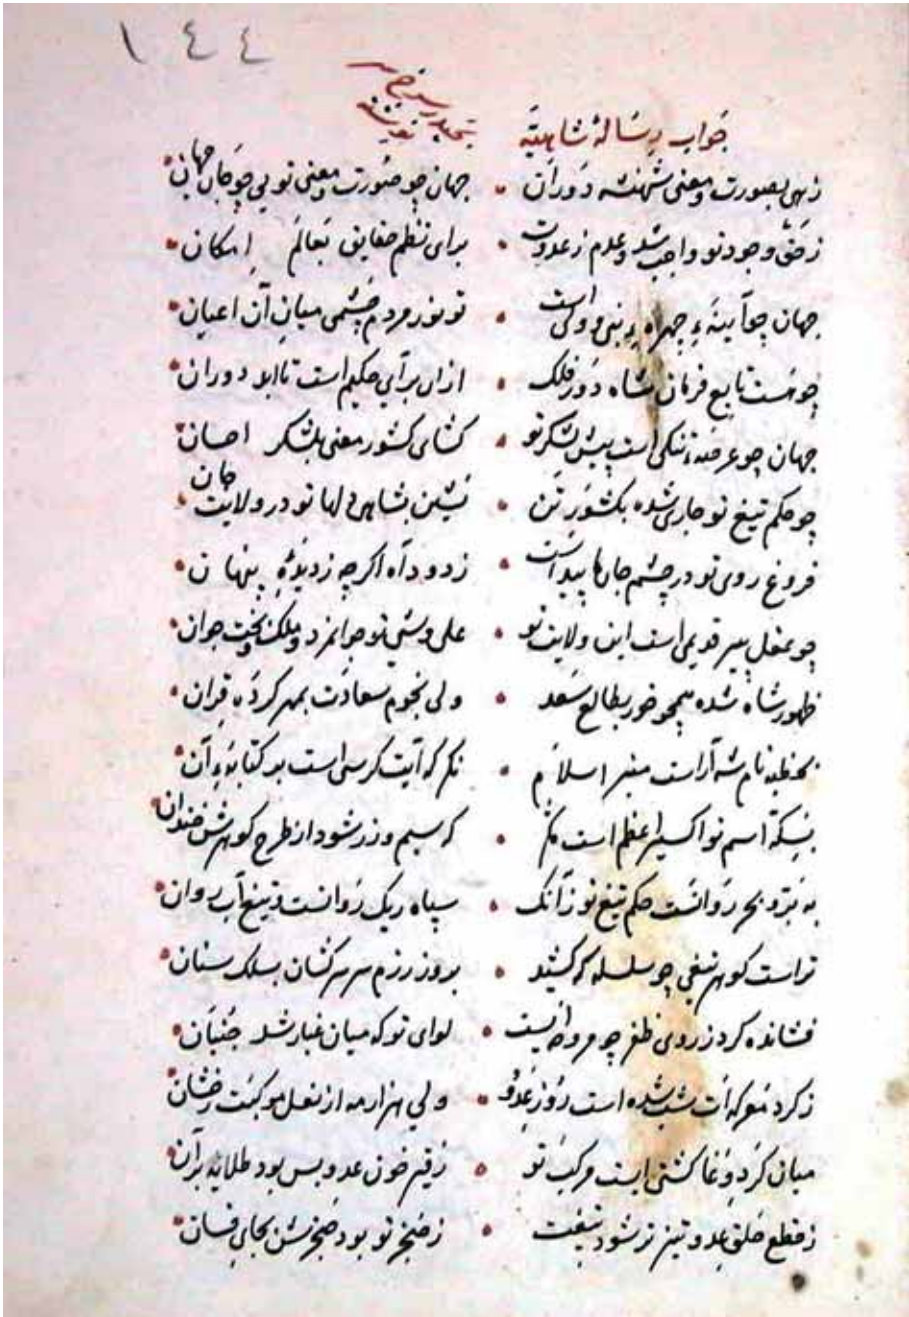 ١٤٤
جواب رسالهٔ شاهیّه
زهی بصورت و معنی شهنشه دوران • جهان چو صورت و معنی تویی چو جان جهان
ز حق وجود تو واجب شد و عدم ز عدوت • برای نظم حقایق بعالم امکان
جهان چو آینهٔ چهرهٔ نبی و ولی است • تو نور مردم چشمی میان آن اعیان
چو هست تابع فرمان شاه دور فلک • ازان برآی حکیم است تا ابد دوران
جهان چو عرصهٔ تنکی است پیش لشکر تو • کشای کشور معنی بلشکر احسان
چو حکم تیغ تو جاری شده بکشور تن • نشین بشاهی دلها تو در ولایت جان
فروغ روی تو در چشم جان ها پیداست • ز دود آه اکر چه ز دیدهٔ پنهان
چو عقل پیر قدیمی است این ولایت تو • علی وشی تو جوانمرد و ملک و بخت جوان
ظهور شاه شده همچو خور بطالع سعد • ولی نجوم سعادت بمهر کرده قران
بخطبه نام شه آراست منبر اسلام • نکر که آیت کرسی است بر کتابهٔ آن
بسکّه اسم تو اکسیر اعظم است مکر • که سیم و زر شود از طرح کوهرش خندان
به برّ و بحر روانست حکم تیغ تو زآنک • سپاه ریک روانست و تیغ آب روان
تراست کوهر تیغی چو سلسله که کشید • بروز رزم سر سرکشان بسلک سنان
فشانده کرد ز روی ظفر چو مروحه ایست • لوای تو که میان غبار شد جنبان
ز کرد معرکه ات شب شده است روز عدو • ولی هزار مه از نعل مرکبت رخشان
میان کرد وغا کشتی ایست مرکب تو • ز قیر خون عدو بس بود طلایه بر آن
ز قطع حلق عدو تیز تر شود تیغت • ز خنجر تو بود خنجرش بجای فسان